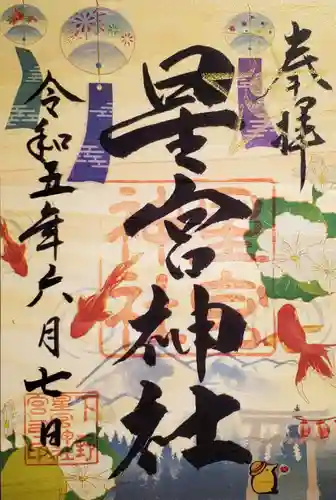 奉拝
星宮神社
令和五年六月七日
星宮神社
下野星宮